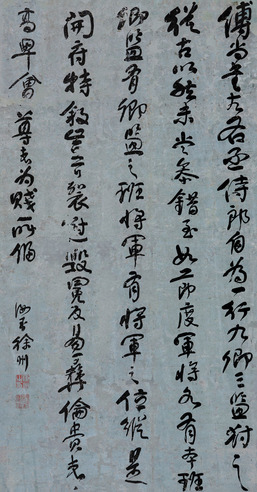 尚書左右丞侍郎自為一行九卿三監對之
從古以然未嘗參錯至如節度軍將各有本班
卿監有卿監之班將軍有將軍之位縱是
開府特敘豈可裂冠毀冕反易彝倫貴者
高卑會 尊者為賤所偪
徐州